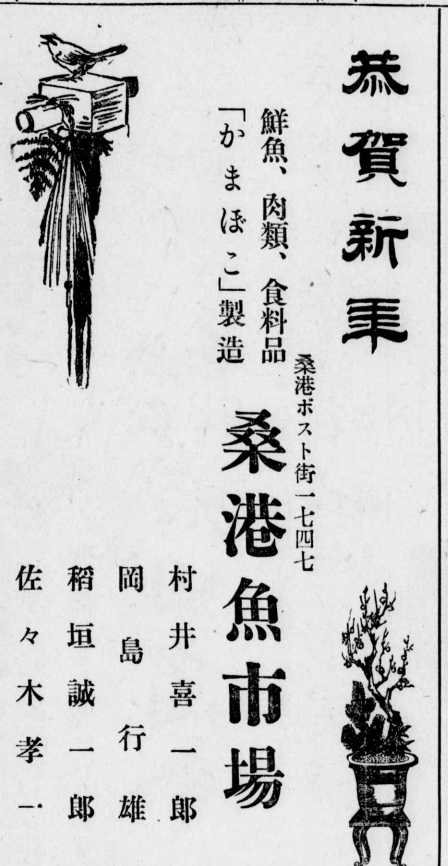 恭賀新年
鮮魚、肉類、食料品
「かまぼこ」製造
桑港ポスト街一七四七
桑港魚市場
村井喜一郎
岡島行雄
稻垣誠一郎
佐々木孝一